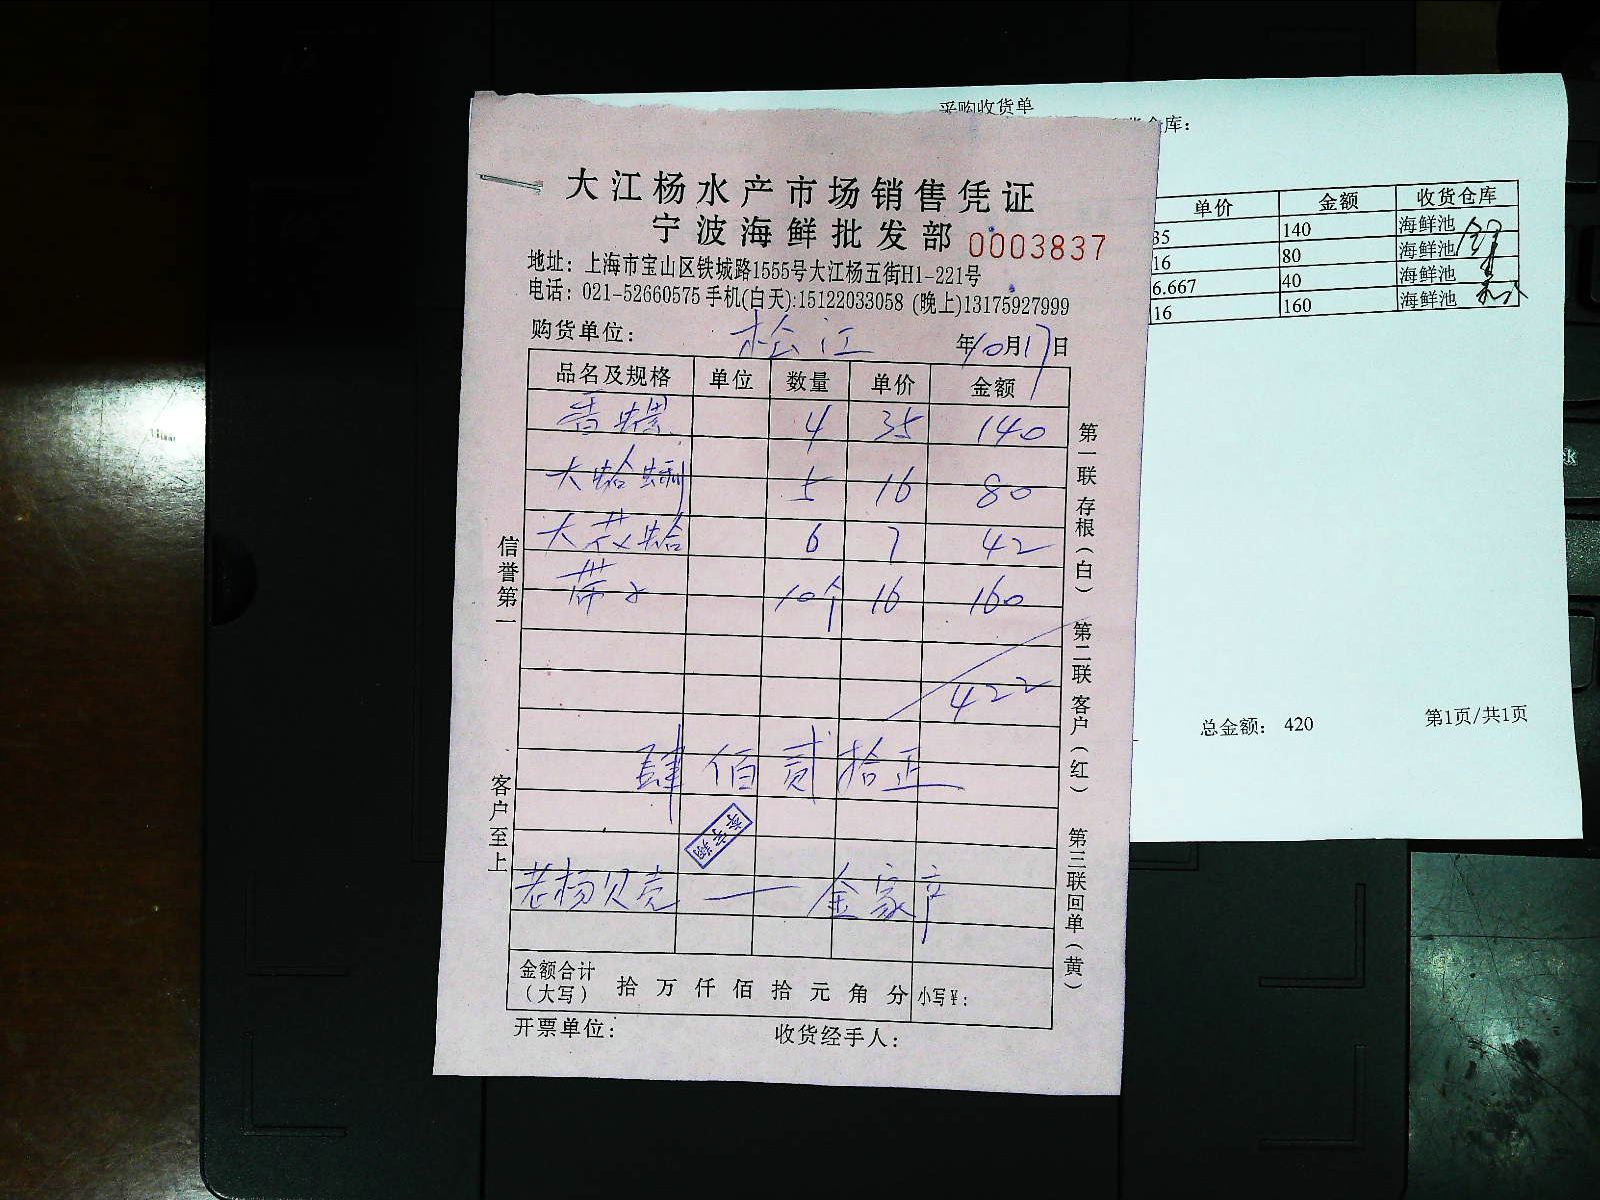 采购收货单
仓库：
大江杨水产市场销售凭证
宁波海鲜批发部 0003837
地址：上海市宝山区铁城路1555号大江杨五街H1-221号
电话：021-52660575 手机(白天):15122033058 (晚上)13175927999
购货单位： 松江 年10月17日
品名及规格 单位 数量 单价 金额
香螺 4 35 140
大蛤蜊 5 16 80
大花蛤 6 7 42
带子 10个 16 160
422
肆佰贰拾正
老杨贝壳 — 金家产
金额合计（大写） 拾 万 仟 佰 拾 元 角 分 小写¥：
开票单位： 收货经手人：
信誉第一
客户至上
第一联 存根（白） 第二联 客户（红） 第三联 回单（黄）
单价 金额 收货仓库
35 140 海鲜池
16 80 海鲜池
6.667 40 海鲜池
16 160 海鲜池
总金额： 420 第1页/共1页